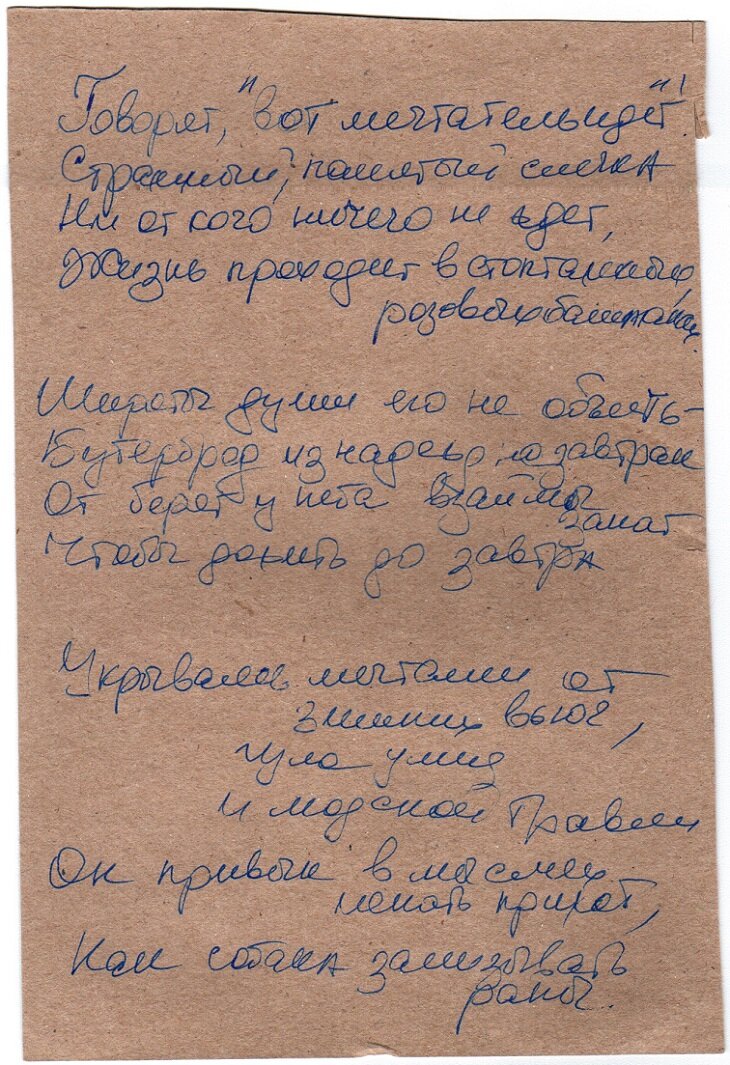 Говорят, "вот мечтатель идёт"!
Странный, помятый слегка
Ни от кого ничего не ждет,
Жизнь проходит в стоптанных,
розовых башмаках.
Широты души его не объять -
Бутерброд из надежд на завтрак
Он берет у неба взаймы
закат
Чтобы дожить до завтра
Укрываясь мечтами от
зимних вьюг,
гула улиц
и людской травли
Он привык в мыслях
искать приют,
Как собака зализывать
раны.